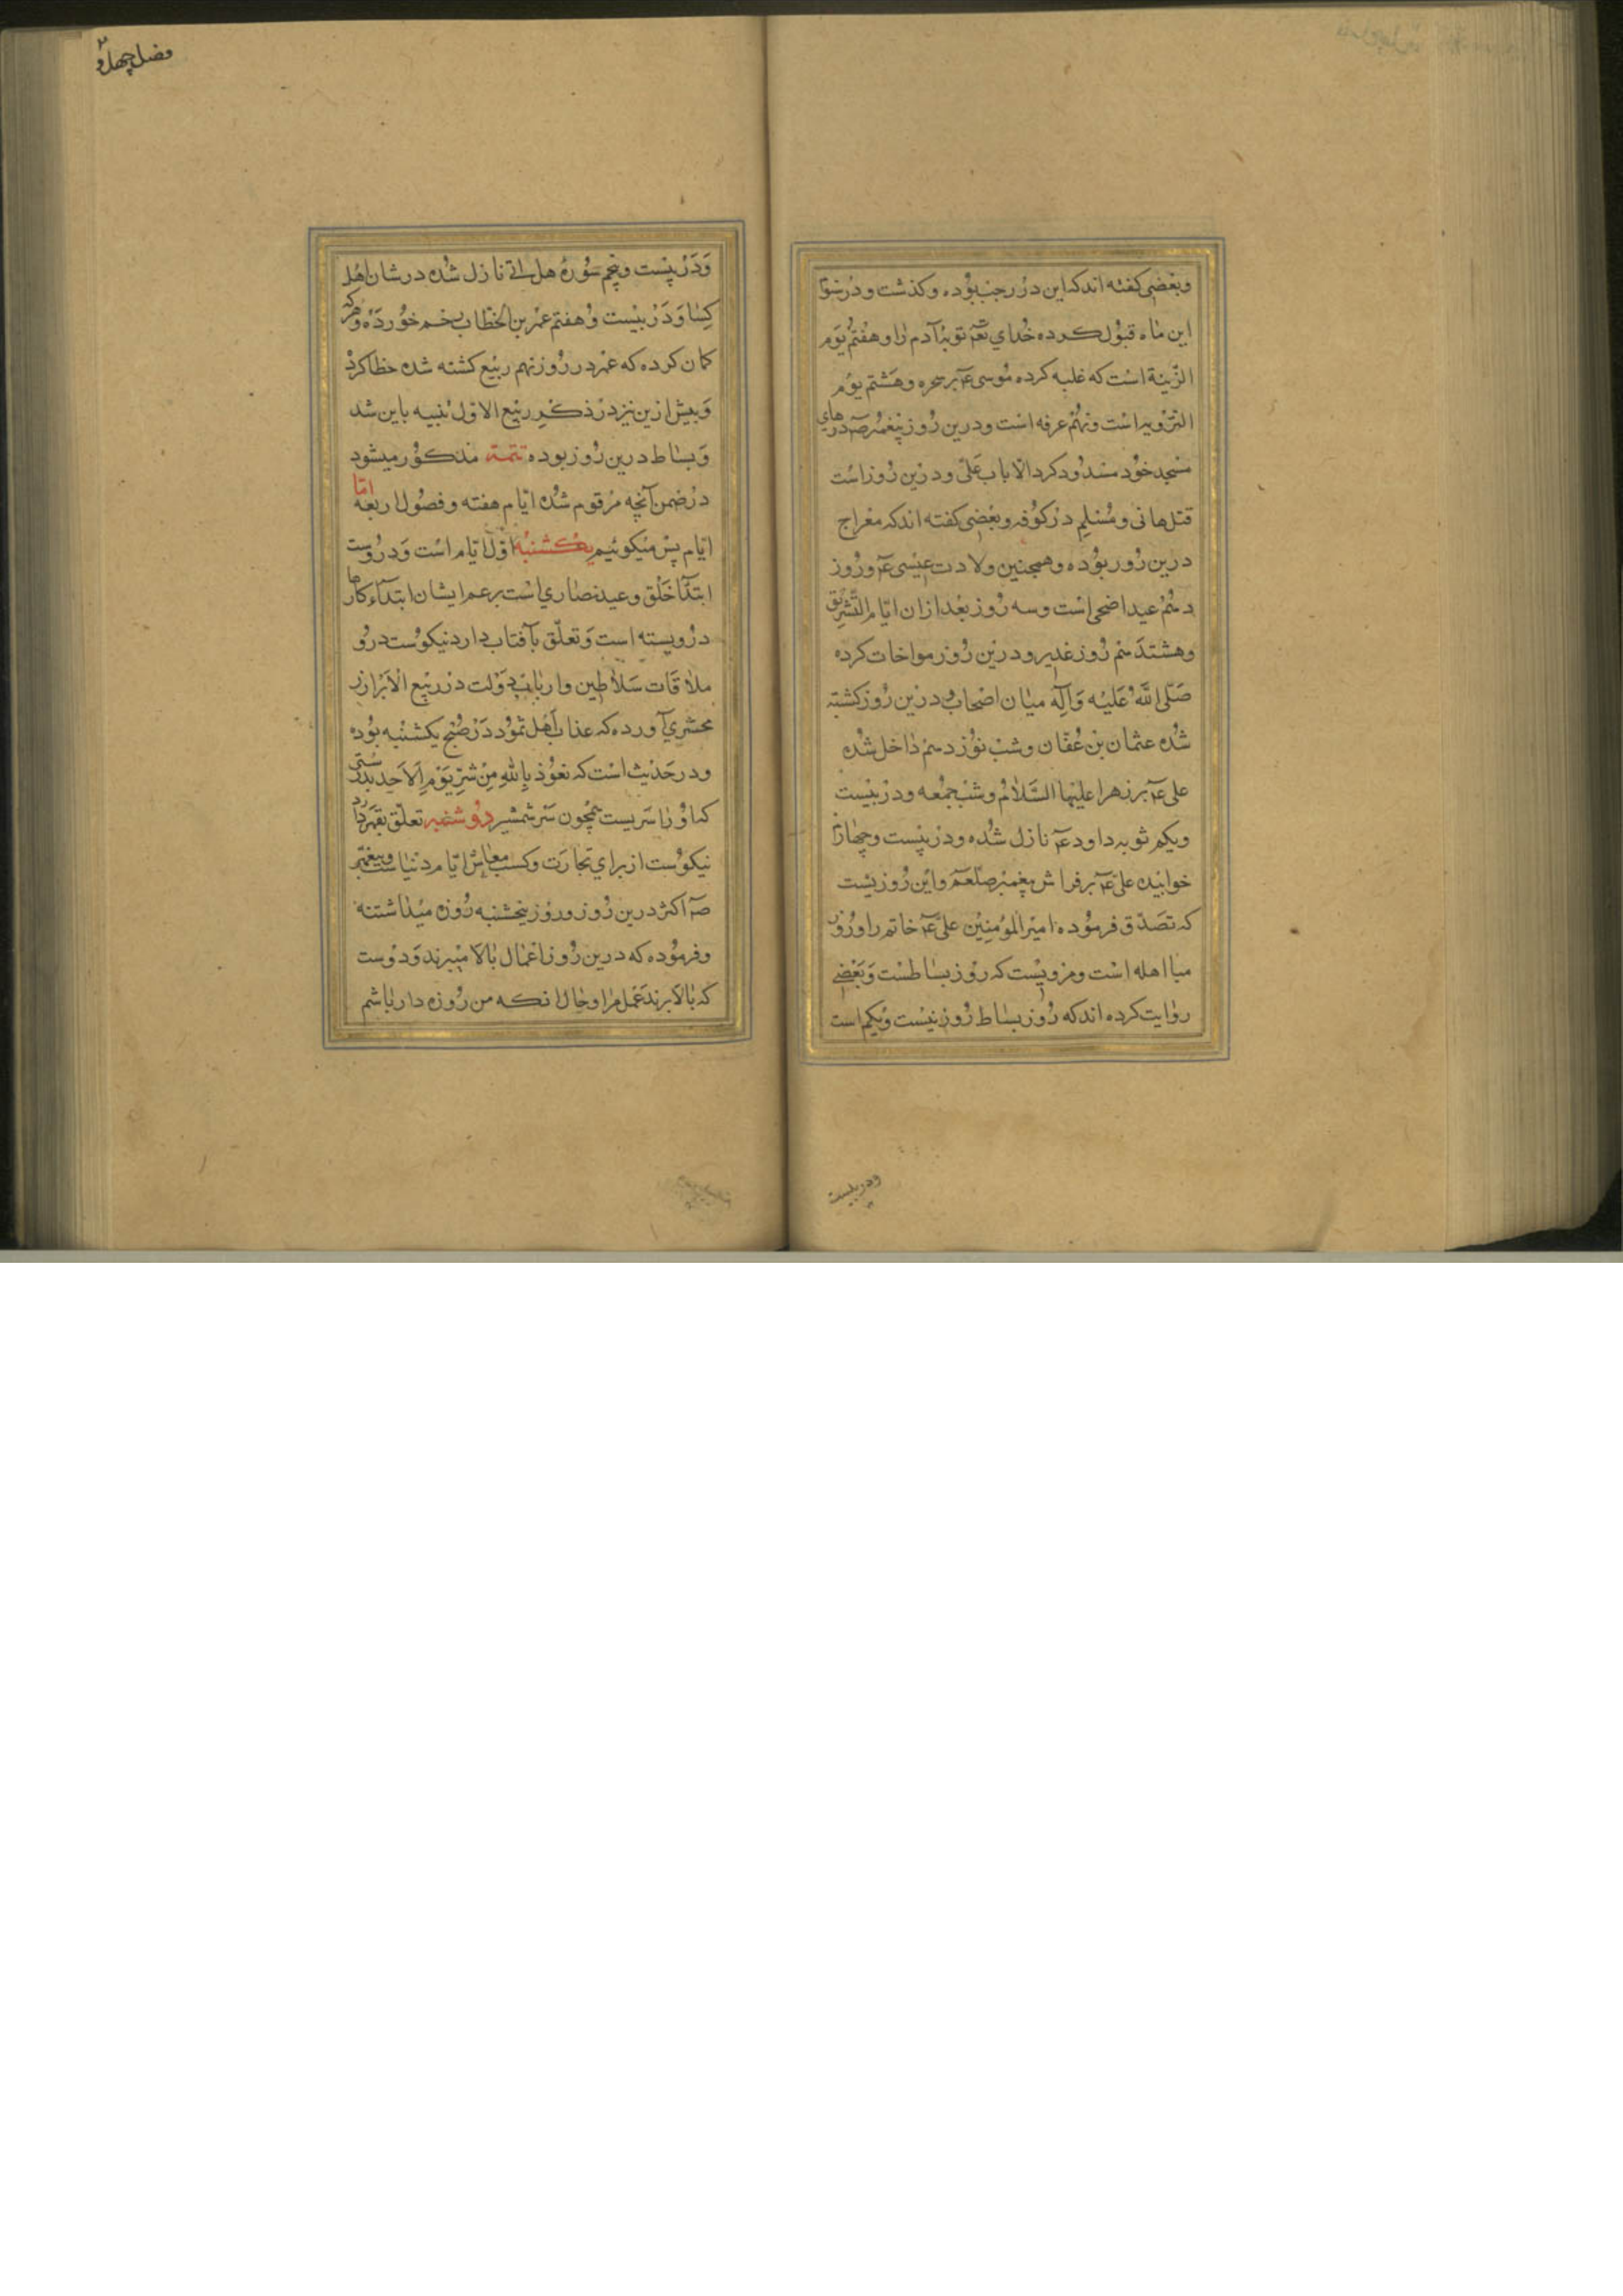 وبعضی کفته اند که این در رجب بوده و کذشت و در سوم
این ماه قبول کرده خدای تعم توبهٔ آدم را و هفتم یوم
الزینة است که غلبه کرده موسی عم بر سحره و هشتم یوم
الترویه است و نهم عرفه است و درین روز پیغمبر صم درهای
مسجد خود مسدود کرد الا باب علی و درین روز است
قتل هانی و مسلم در کوفه و بعضی کفته اند که معراج
درین روز بوده و همچنین ولادت عیسی عم و روز
دهم عید اضحی است و سه روز بعد از ان ایام التشریق
و هشتدهم روز غدیر و درین روز مواخات کرده
صلی الله علیه وآله میان اصحاب و درین روز کشته
شده عثمان بن عفان و شب نوزدهم داخل شده
علی عم بر زهرا علیها السلام و شب جمعه و در بیست
ویکم توبه داود عم نازل شده و در بیست و چهارم
خوابیده علی عم بر فراش پیغمبر صلعم و این روزیست
که تصدق فرموده امیر المؤمنین علی عم خاتم را و روز
مبااهله است و مرویست که روز بساطست و بعضی
روایت کرده اند که روز بساط روز بیست ویکم است
ودر بیست
فصل چهل و ۲
ودر بیست وپنجم سوره هل اتی نازل شده در شان اهل
کسا و در بیست و هفتم عمر بن الخطاب زخم خورده و هرکه
کمان کرده که عمر در روز نهم ربیع کشته شده خطا کرده
و پیش ازین نیز در ذکر ربیع الاول تنبیه باین شد
و بساط درین روز بوده تتمة مذکور میشود
در ضمن آنچه مرقوم شده ایام هفته و فصول اربعه اما
ایام پس میکوئیم یکشنبه اول ایام است و در وست
ابتدا خلق و عید نصاری است بزعم ایشان ابتداء کارها
در ویسته است و تعلق بآفتاب دارد نیکوست درو
ملاقات سلاطین و ارباب دولت در ربیع الابرار ز
محشری آورده که عذاب اهل ثمود در صبح یکشنبه بوده
و در حدیث است که نعوذ بالله من شر یوم الاحد بدرستی
که اورا سریست همچون سر شمشیر دوشنبه تعلق بقمر دارد
نیکوست از برای تجارت و کسب معاش ایام دنیاست و پیغمبر
صم اکثر درین روز و روز پنجشنبه روزه میداشتند
و فرموده که درین روز اعمال بالا میبرند و دوست
که بالا برند عمل مرا و حال انکه من روزه دار باشم